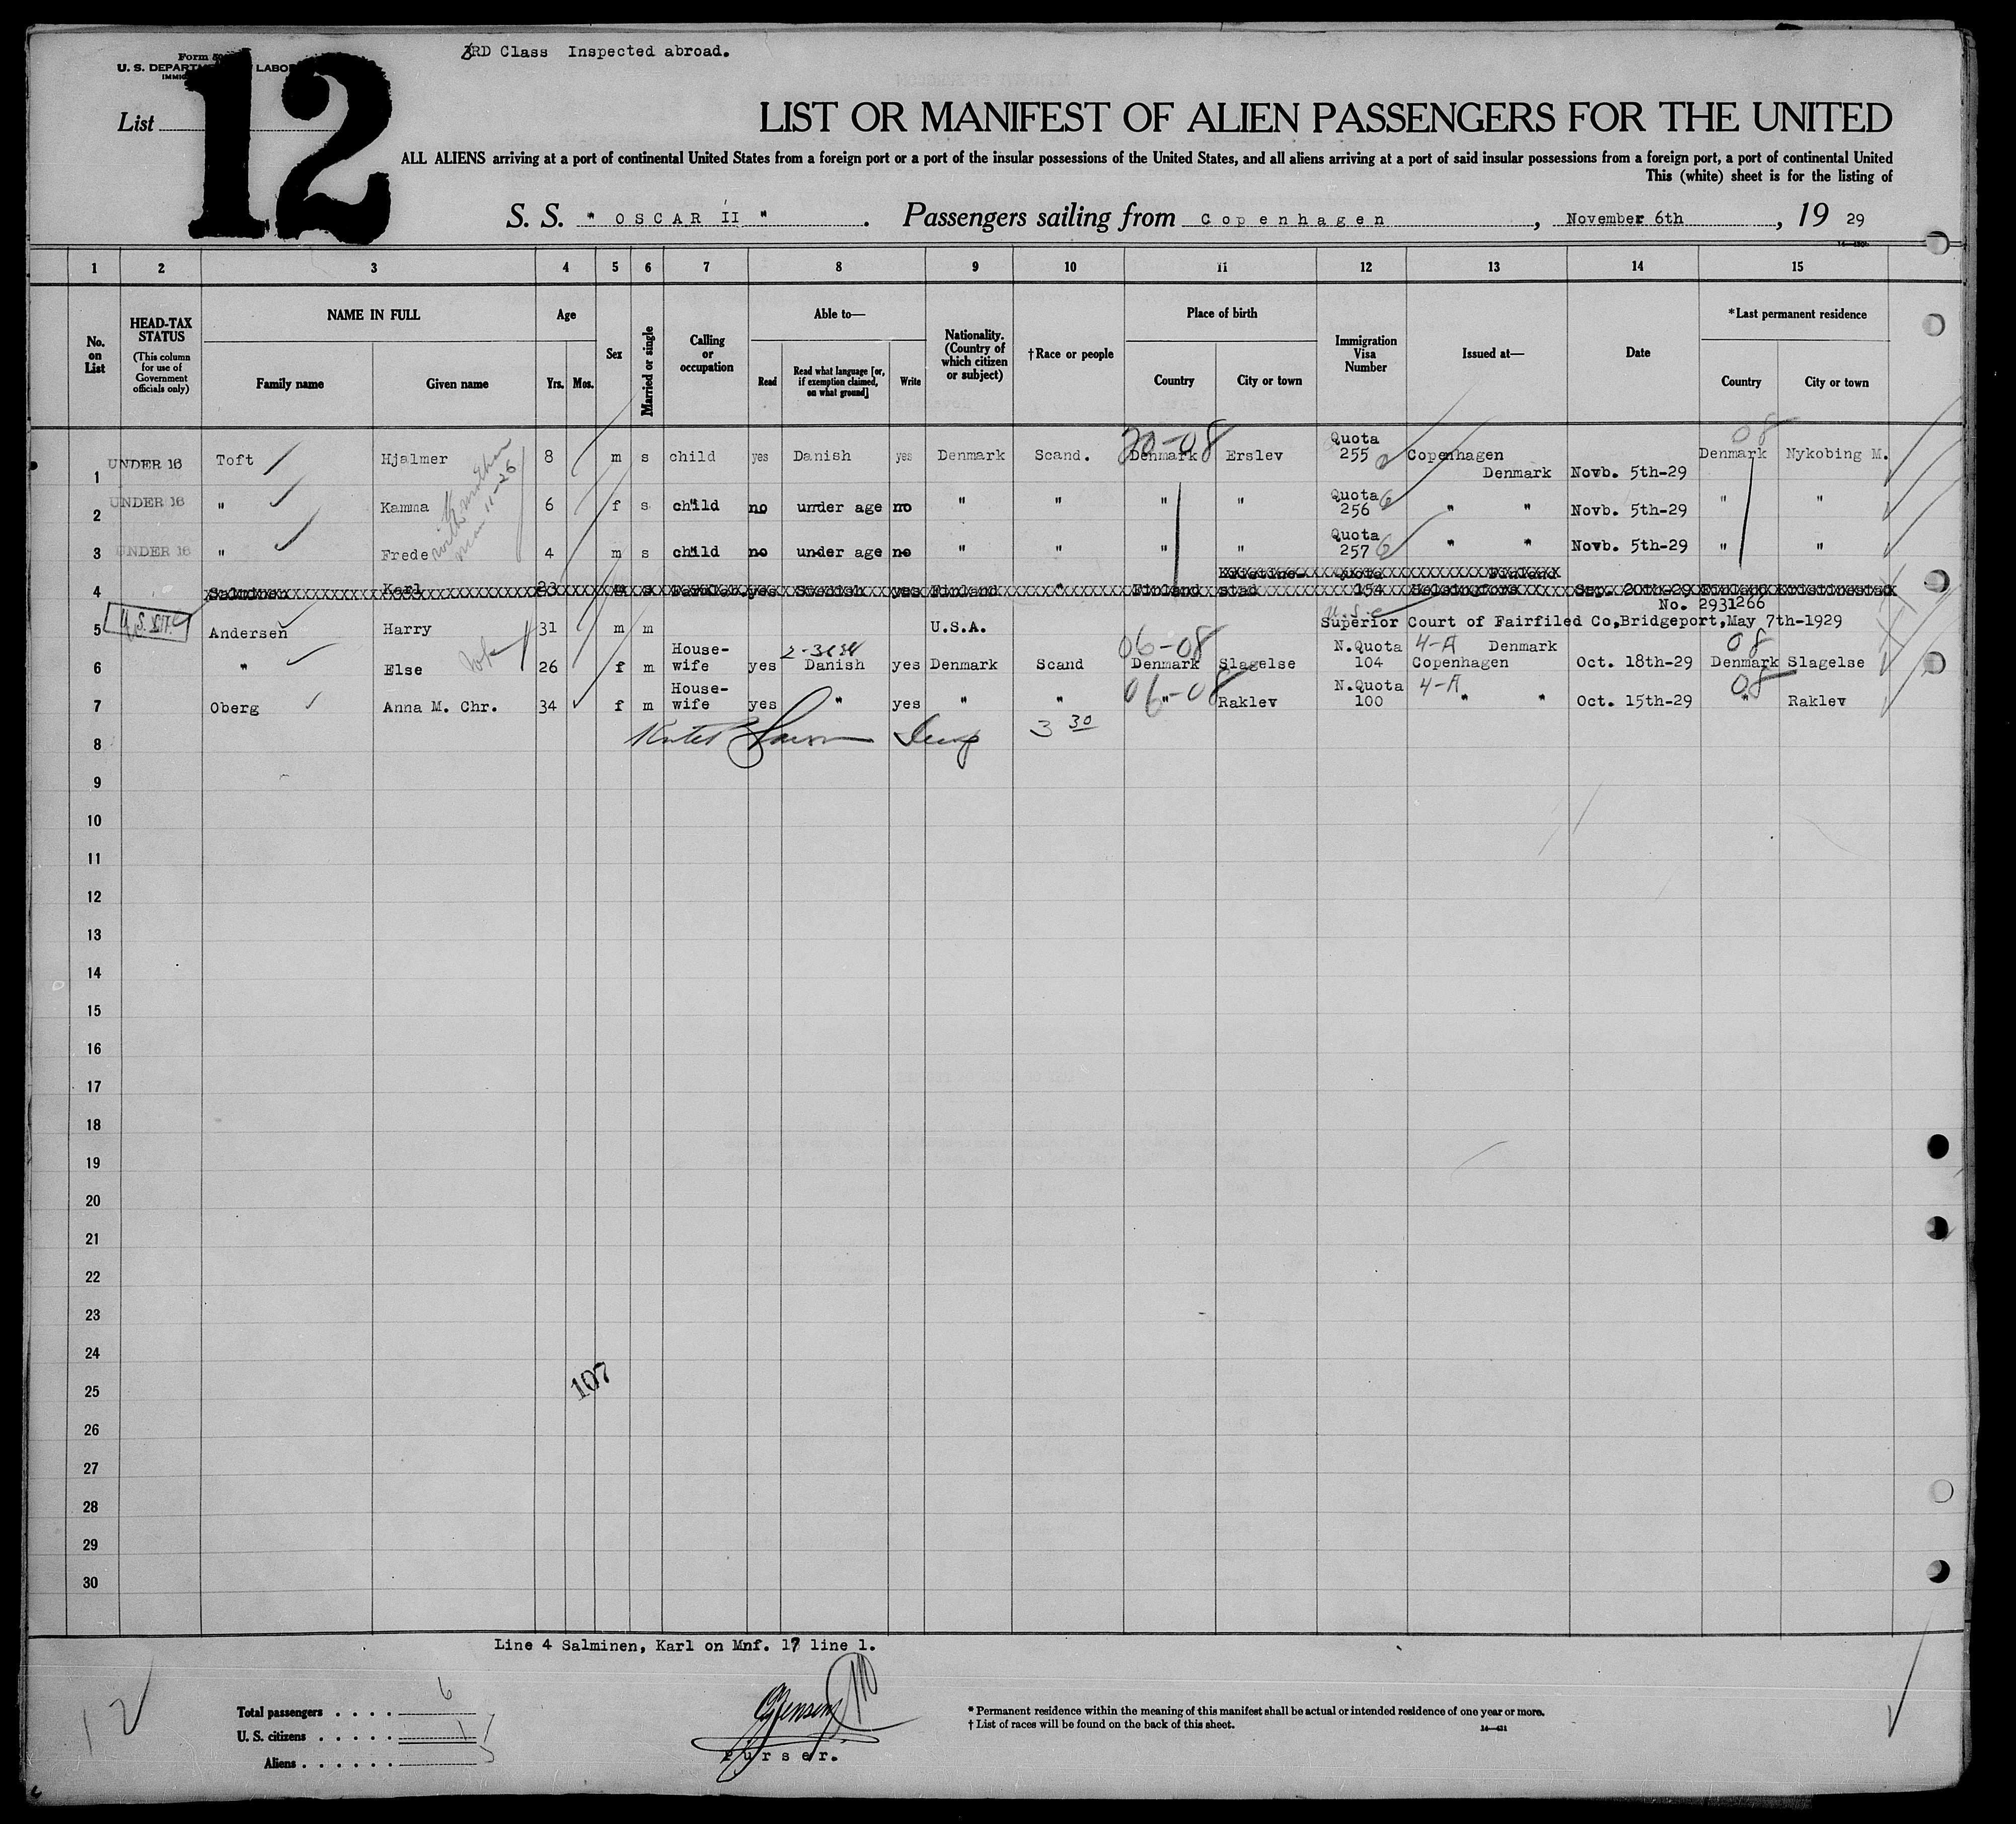 3RD Class Inspected abroad.
Form 50
U. S. DEPARTM LABO
IMMIG
List
12
LIST OR MANIFEST OF ALIEN PASSENGERS FOR THE UNITED
ALL ALIENS arriving at a port of continental United States from a foreign port or a port of the insular possessions of the United States, and all aliens arriving at a port of said insular possessions from a foreign port, a port of continental United
This (white) sheet is for the listing of
S. S. " OSCAR II ". Passengers sailing from Copenhagen, November 6th, 19 29
1 2 3 4 5 6 7 8 9 10 11 12 13 14 15
No. on List
HEAD-TAX STATUS (This column for use of Government officials only)
NAME IN FULL
Family name Given name
Age
Yrs. Mos.
Sex
Married or single
Calling or occupation
Able to—
Read Read what language [or, if exemption claimed, on what ground] Write
Nationality. (Country of which citizen or subject)
†Race or people
Place of birth
Country City or town
Immigration Visa Number
Issued at—
Date
*Last permanent residence
Country City or town
20-08 08
1 UNDER 16 Toft Hjalmer 8 m s child yes Danish yes Denmark Scand. Denmark Erslev Quota 255 Copenhagen Denmark Novb. 5th-29 Denmark Nykobing M.
with mother
11-26
2 UNDER 16 " Kamma 6 f s child no under age no " " " " Quota 256 " " Novb. 5th-29 " "
3 UNDER 16 " Frede 4 m s child no under age no " " " " Quota 257 " " Novb. 5th-29 " "
4 Salminen Karl 23 m s yes Swedish yes Finland " Finland Kristine-stad Quota 154 Helsingfors Finland Sep. 20th-29 Finland Kristinestad
No. 2931266
5 Andersen Harry 31 m m U.S.A. Superior Court of Fairfiled Co,Bridgeport,May 7th-1929
06-08 4-A 08
6 " Else 26 f m House-wife yes Danish yes Denmark Scand Denmark Slagelse N.Quota 104 Copenhagen Denmark Oct. 18th-29 Denmark Slagelse
06-08 4-A 08
7 Oberg Anna M. Chr. 34 f m House-wife yes " yes " " " Raklev N.Quota 100 " " Oct. 15th-29 " Raklev
8 3 30
9
10
11
12
13
14
15
16
17
18
19
20
21
22
23
24
25 107
26
27
28
29
30
Line 4 Salminen, Karl on Mnf. 17 line 1.
12
Total passengers . . . . 6
U. S. citizens . . . . . 1
Aliens . . . . . . 5
Purser.
* Permanent residence within the meaning of this manifest shall be actual or intended residence of one year or more.
† List of races will be found on the back of this sheet.
14—421